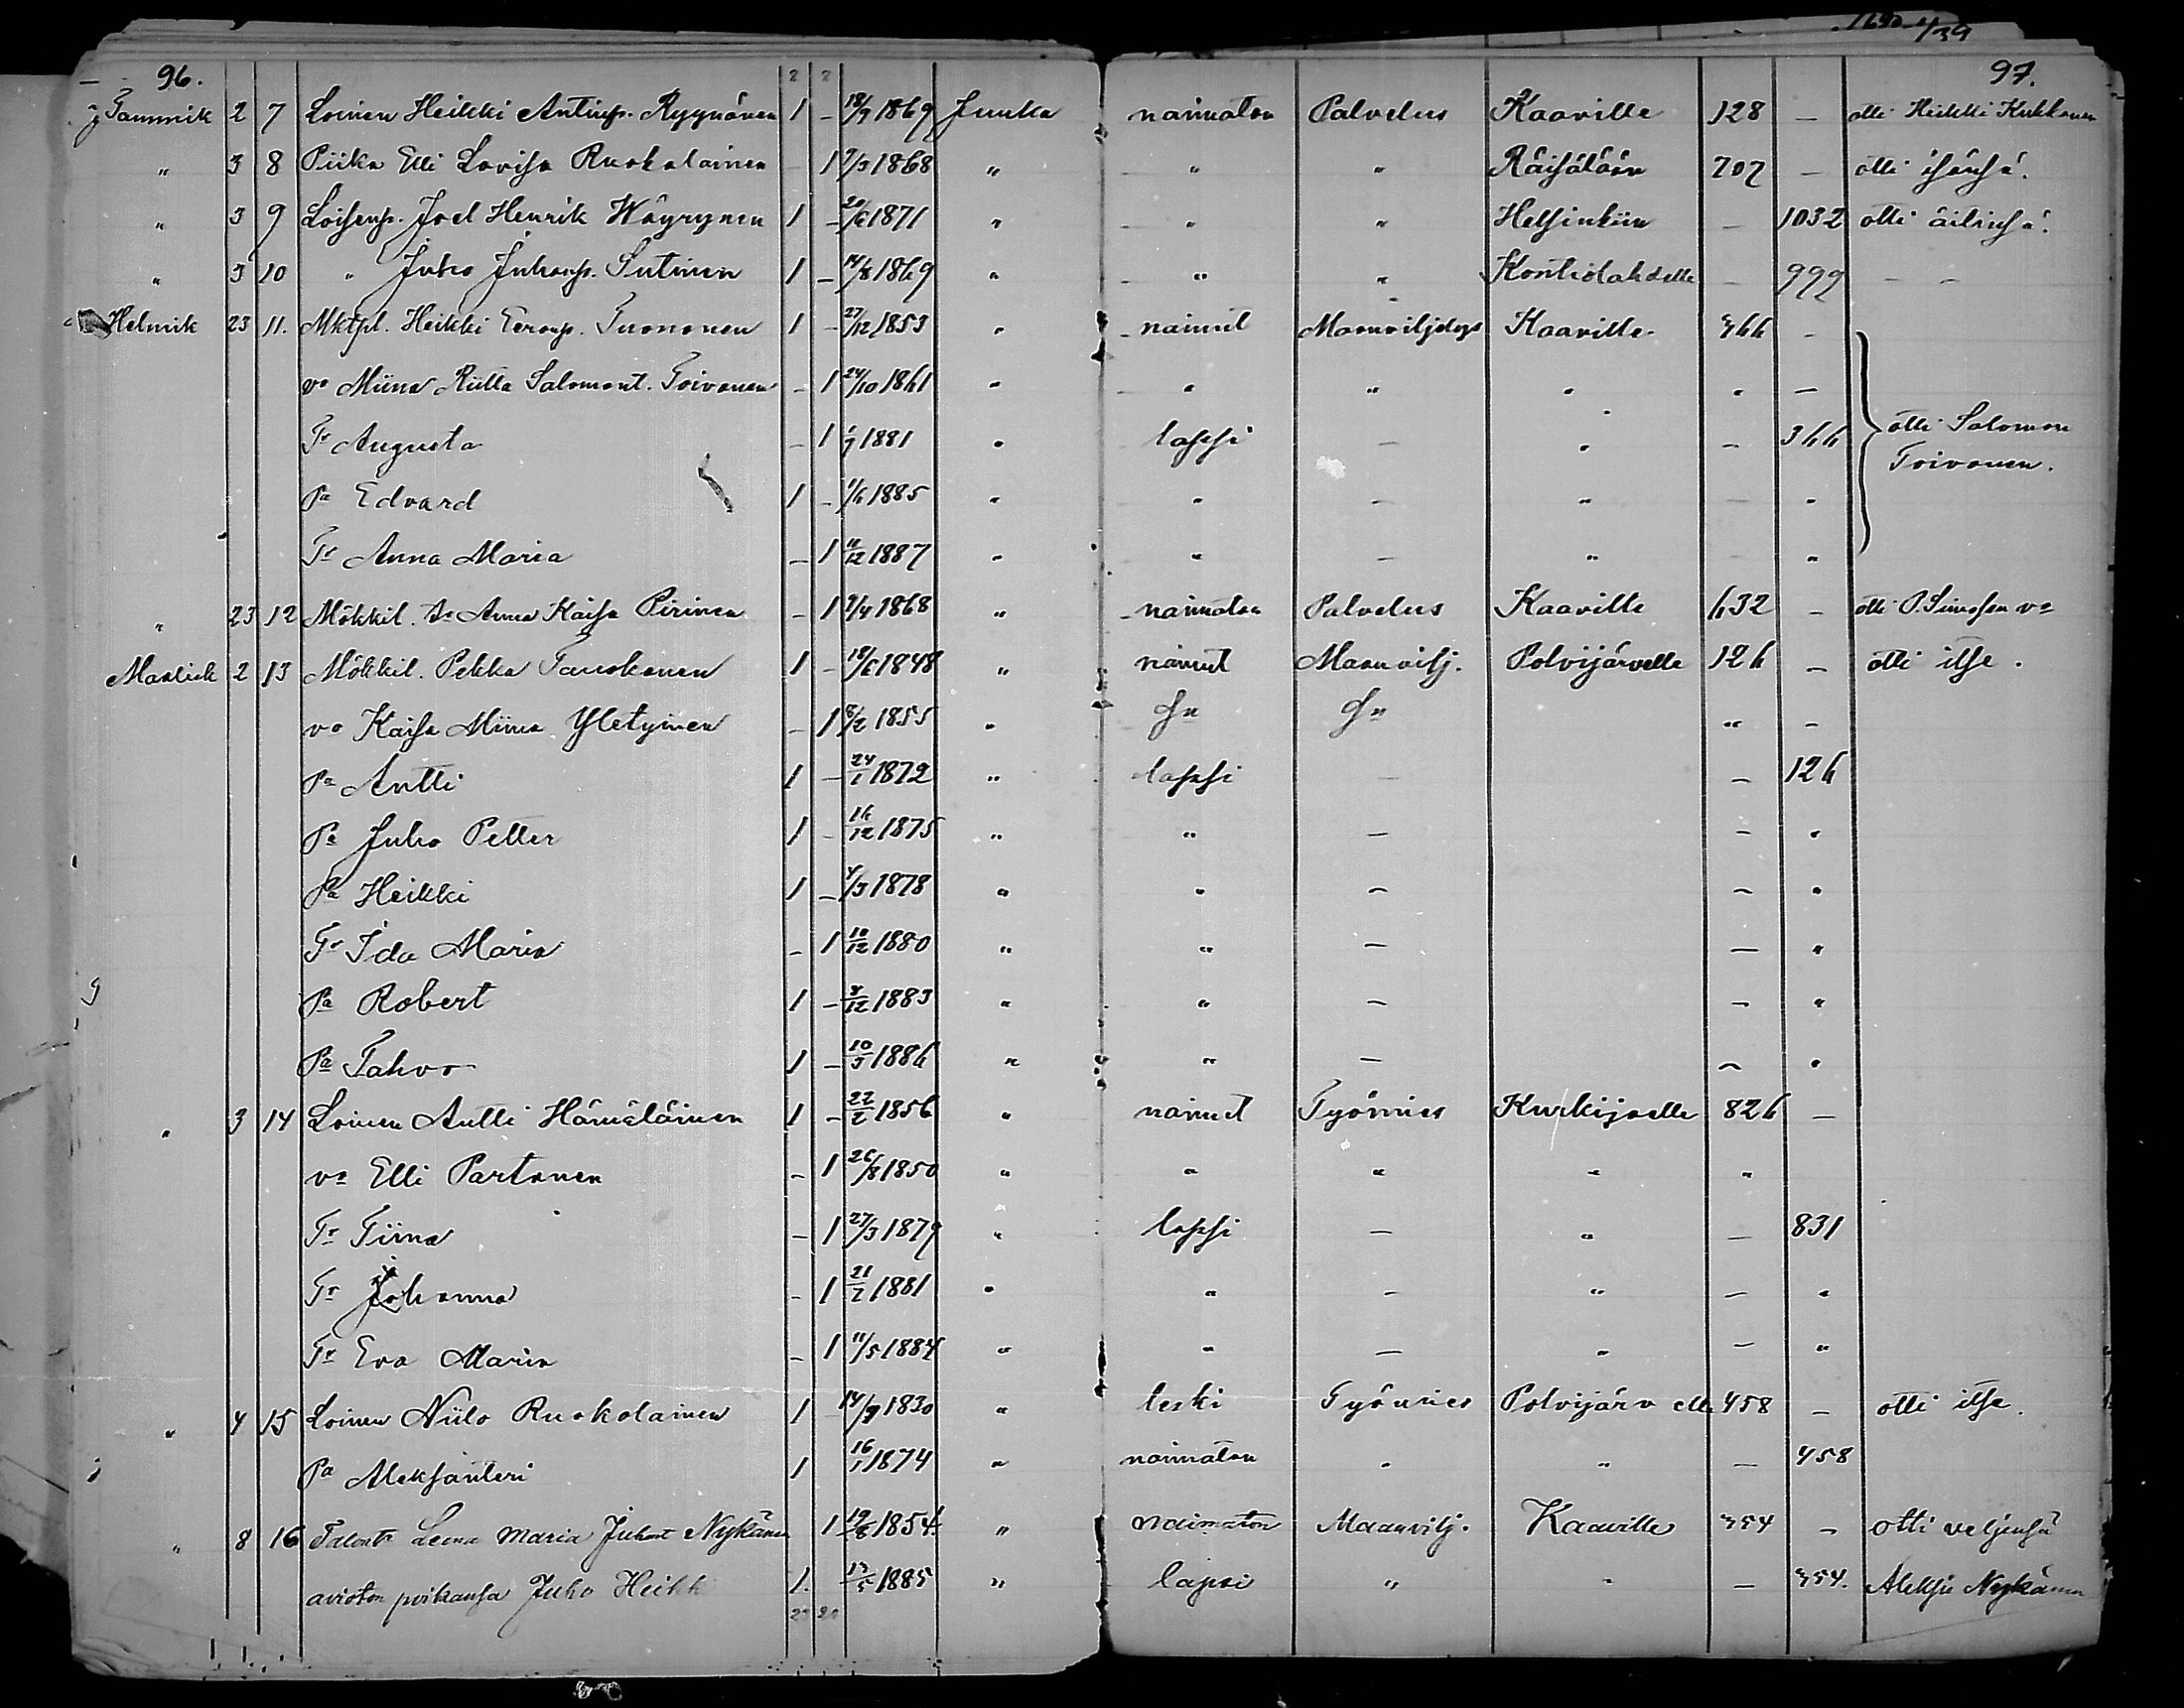 96. 97.
Tammik 2 7 Loinen Heikki Antinp. Ryynänen 1 – 18/9 1869 Juuka naimaton Palvelus Kaaville 128 — otti Heikki Kukkonen
" 3 8 Piika Elli Lovisa Ruokolainen – 1 7/3 1868 " " " Räisälään 707 — otti isänsä.
" 3 9 Loisenp. Joel Henrik Wäyrynen 1 – 20/6 1871 " " " Helsinkiin – 1032 otti äitinsä.
" 3 10 " Juho Juhonp. Sutinen 1 – 14/8 1869 " " " Kontiolahdelle – 999 – –
Helmik 23 11. Mktpl. Heikki Eeronp. Tuononen 1 – 27/12 1853 " nainut Maanviljelys Kaaville 366 –
vo Miina Riitta Salomont. Toivonen – 1 24/10 1861 " " " " " —
Tr Augusta – 1 1/7 1881 " lapsi – " – 366 otti Salomon
Toivonen.
Pa Edvard 1 – 1/6 1885 " " – " "
Tr Anna Maria – 1 11/12 1887 " " – " "
" 23 12 Mökkil. tr Anna Kaisa Pirinen – 1 7/4 1868 " naimaton Palvelus Kaaville 632 – otti P. Simosen vo
Maalisk 2 13 Mökkil. Pekka Tanskanen 1 – 18/6 1848 " nainut Maanvilj. Polvijärvelle 126 – otti itse.
vo Kaisa Miina Yletyinen – 1 8/2 1855 " Sn Sn " –
Pa Antti 1 – 24/1 1872 " lapsi – – 126
Pa Juho Petter 1 – 16/12 1875 " " – – "
Pa Heikki 1 – 4/3 1878 " " – – "
Tr Ida Maria – 1 10/12 1880 " " – – "
Pa Robert 1 – 8/12 1883 " " – – "
Pa Tahvo 1 – 10/3 1886 " " – – "
" 3 14 Loinen Antti Hämäläinen 1 – 22/2 1856 " nainut Työmies Kurkijoelle 826 –
va Elli Partanen – 1 26/8 1850 " " " " "
Tr Tiina – 1 27/3 1879 " lapsi – " – 831
Tr Johanna – 1 21/2 1881 " " – " – "
Tr Eva Maria – 1 11/5 1884 " " – " – "
" 4 15 Loinen Niilo Ruokolainen 1 14/9 1830 " leski Työmies Polvijärvelle 458 – otti itse.
Pa Aleksanteri 1 16/1 1874 " naimaton " " – 458
" 8 16 Talont. Leena Maria Juhont Nykänen 1 19/8 1854 " naimaton Maanvilj. Kaaville 354 – otti veljensä
avioton poikansa Juho Heikki 1. 13/5 1885 " lapsi " " – 354. Aleksi Nykänen